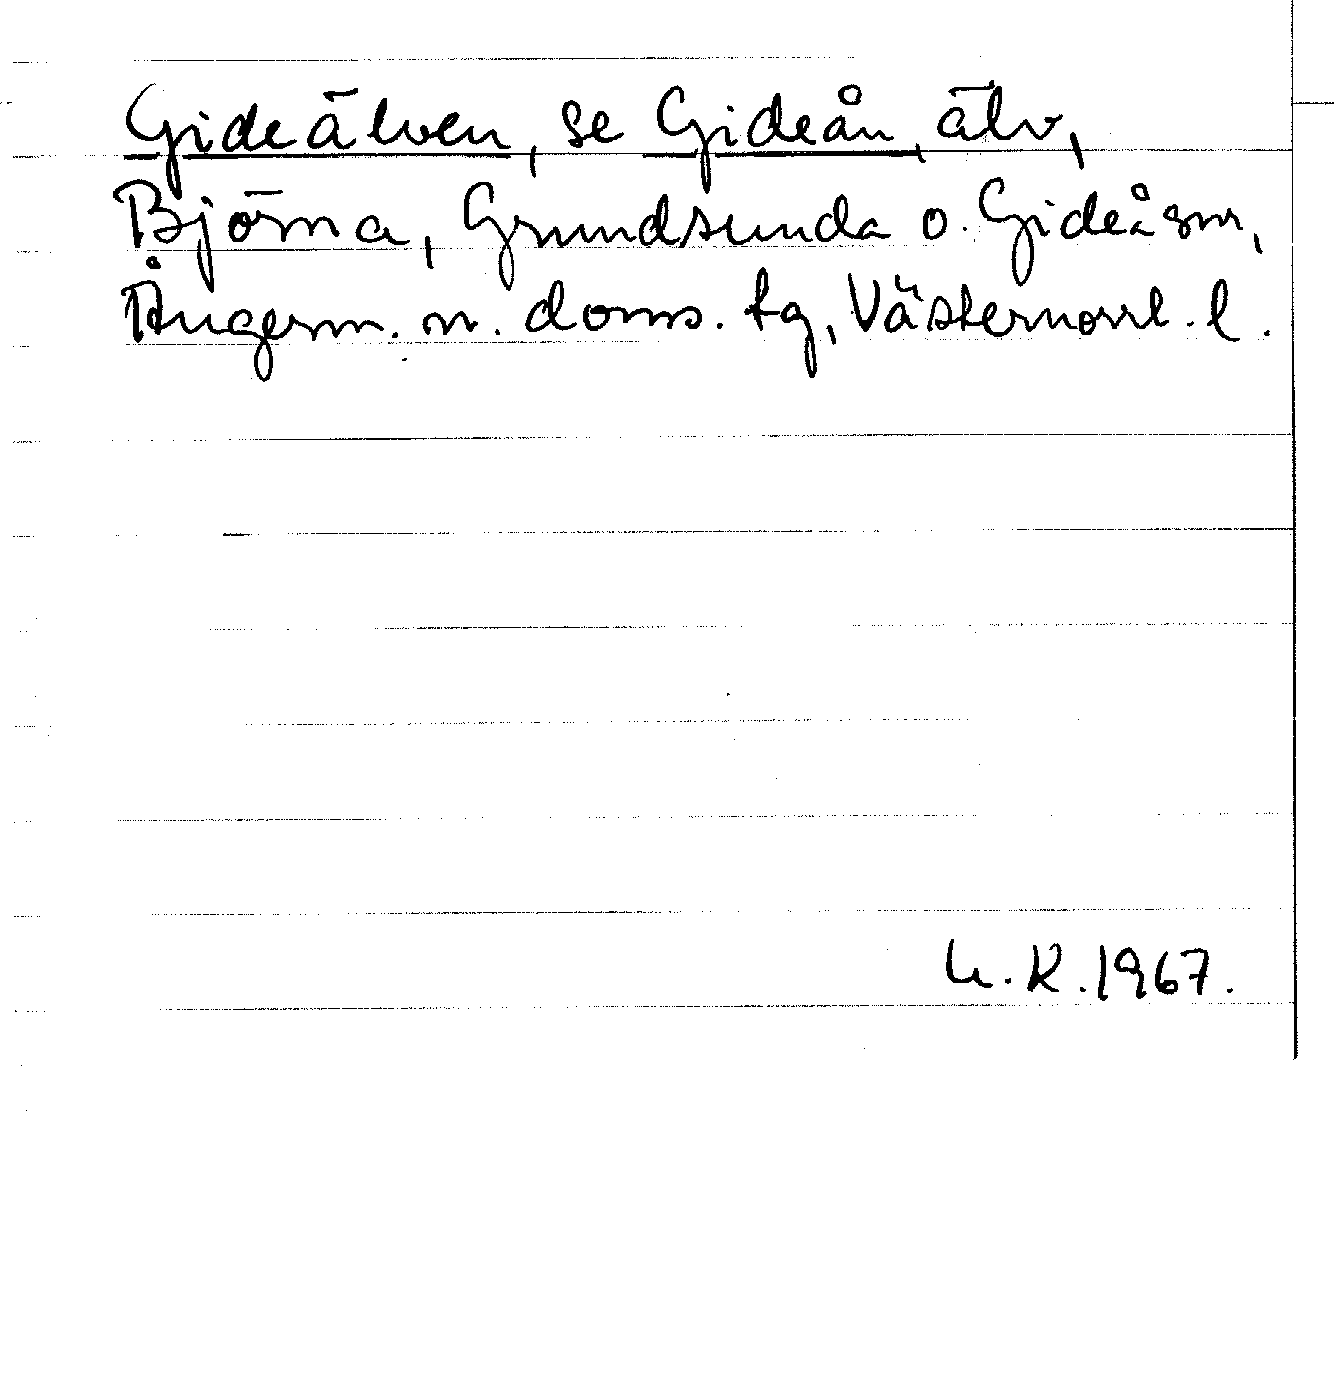 Gideälven, se Gideån, älv,
Björna, Grundsunda o. Gideå snr,
Ångerm. n. doms. tg, Västernorrl. l.
K. 1967.